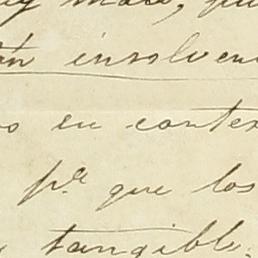 mas, qu
tán insolven
o en contex
p.ª que los
tangible